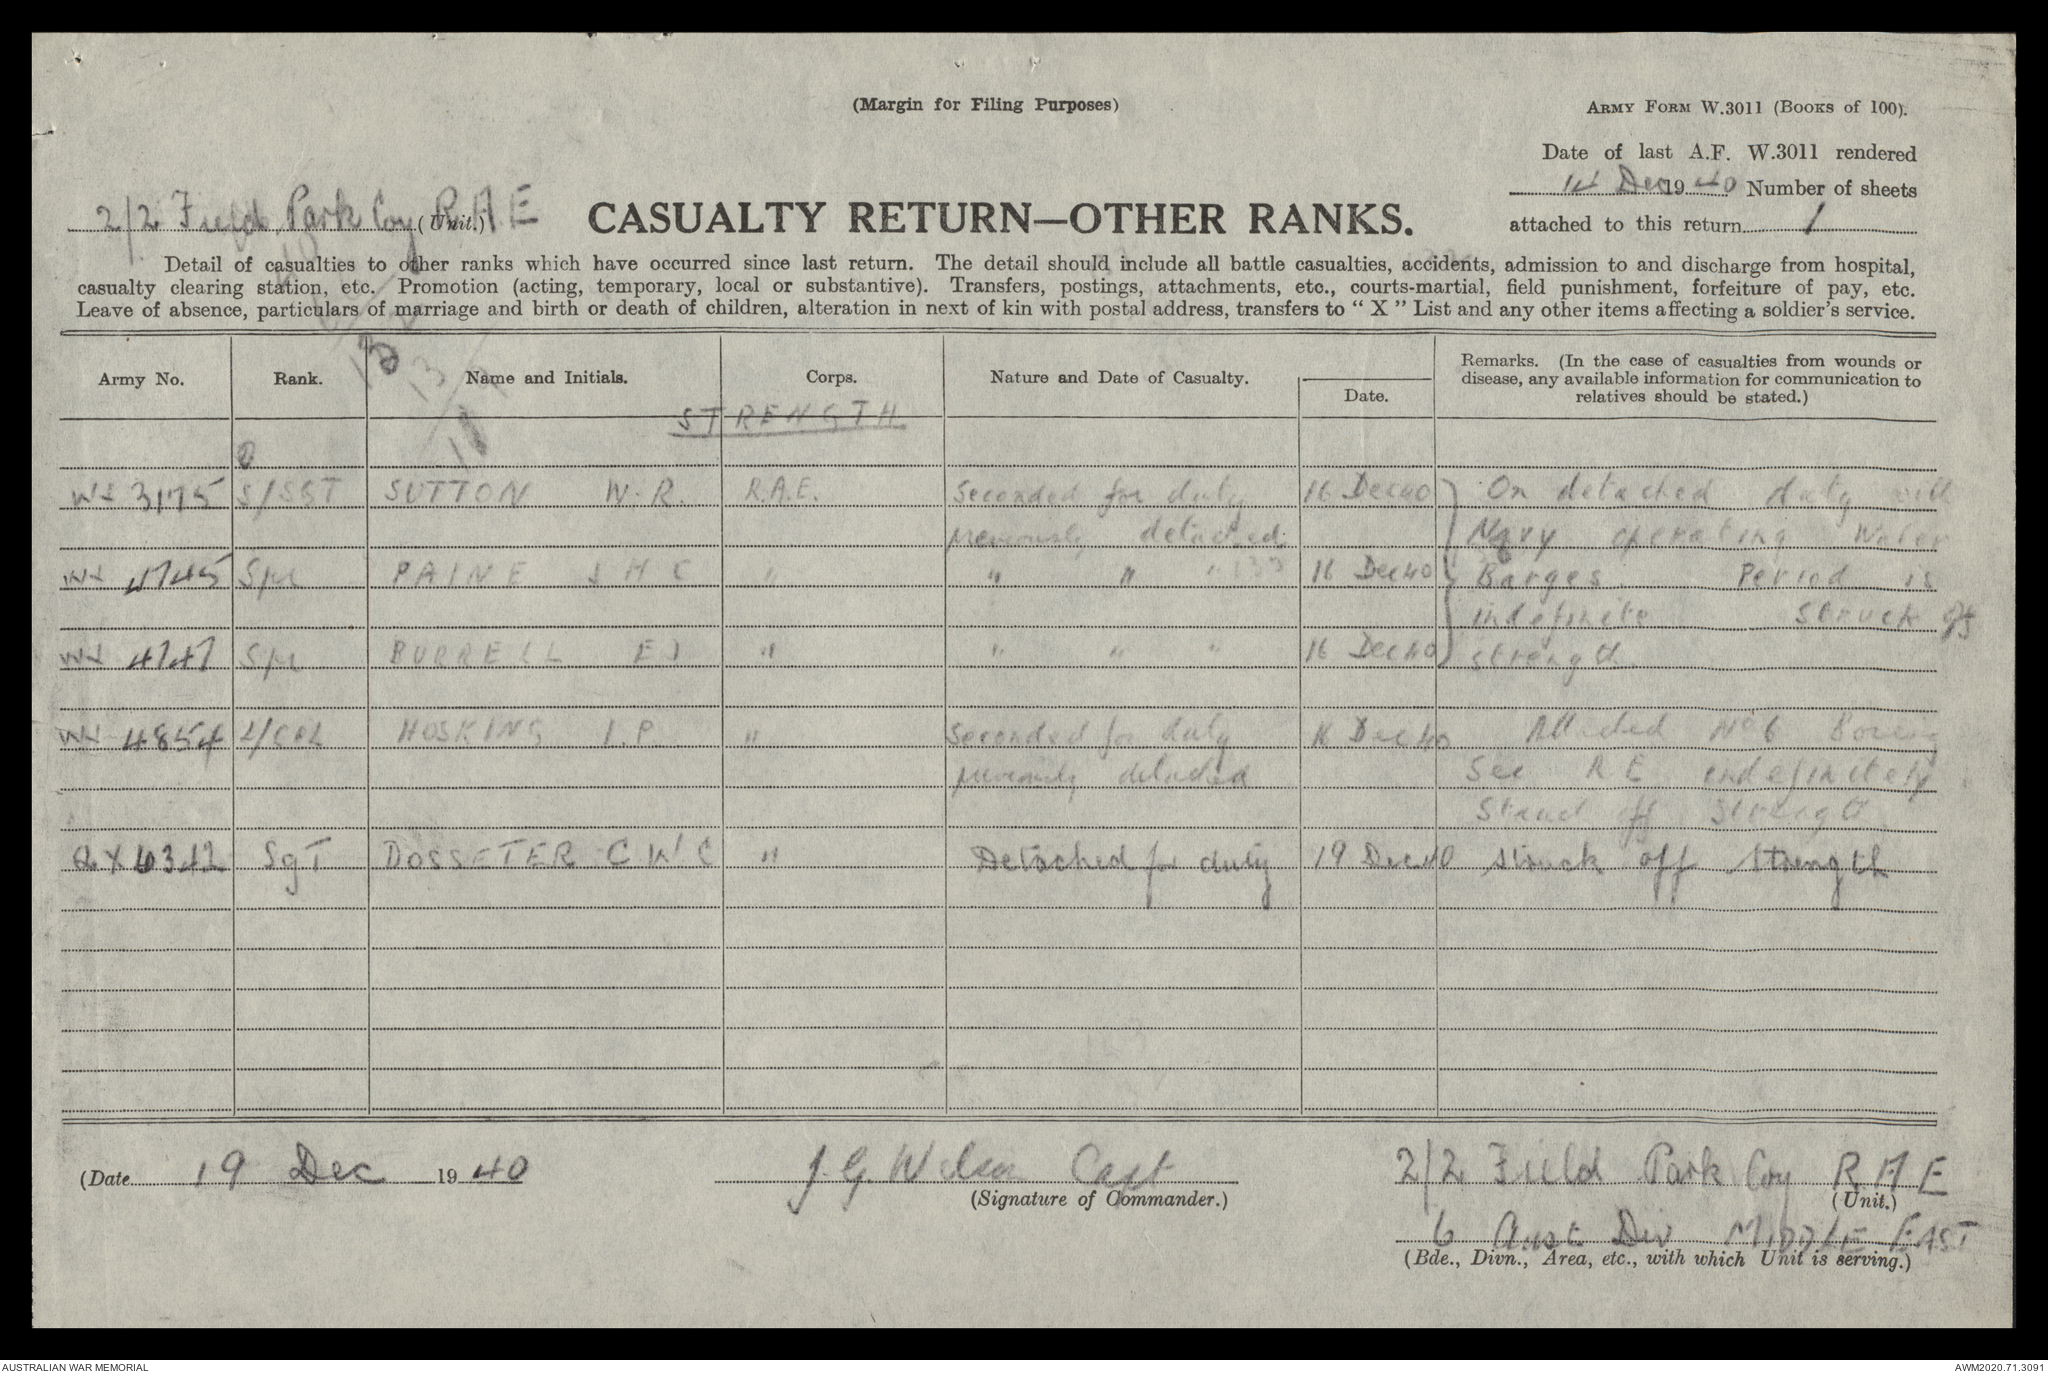 (Margin for Filing Purposes)
ARMY FORM W.3011 (Books of 100).
Date of last A.F. W.3011 rendered
14 Dec 1940 Number of sheets
attached to this return 1
2/2 Field Park Coy RAE (Unit.)
CASUALTY RETURN—OTHER RANKS.
Detail of casualties to other ranks which have occurred since last return. The detail should include all battle casualties, accidents, admission to and discharge from hospital,
casualty clearing station, etc. Promotion (acting, temporary, local or substantive). Transfers, postings, attachments, etc., courts-martial, field punishment, forfeiture of pay, etc.
Leave of absence, particulars of marriage and birth or death of children, alteration in next of kin with postal address, transfers to “ X ” List and any other items affecting a soldier's service.
Army No. Rank. Name and Initials. Corps. Nature and Date of Casualty. Date. Remarks. (In the case of casualties from wounds or
disease, any available information for communication to
relatives should be stated.)
STRENGTH
WX 3175 S/SGT SUTTON W.R. R.A.E. Seconded for duty 16 Dec 40 On detached duty with
previously detached Navy operating Water
WX 4745 Spr PAINE J H C " " " " 16 Dec 40 Barges. Period is
indefinite struck off
WX 4747 Spr BURRELL E J " " " " 16 Dec 40 strength.
WX 4854 L/CPL HOSKING I.P. " Seconded for duty 16 Dec 40 Attached No 6 Boring
previously detached Sec R E indefinitely
Struck off Strength.
QX 6342 Sgt DOSSETER C W C " Detached for duty 19 Dec 40 struck off strength
(Date 19 Dec 1940
J. G. Wilson Capt
(Signature of Commander.)
2/2 Field Park Coy RAE
(Unit.)
6 Aust Div MIDDLE EAST
(Bde., Divn., Area, etc., with which Unit is serving.)
AUSTRALIAN WAR MEMORIAL
AWM2020.71.3091